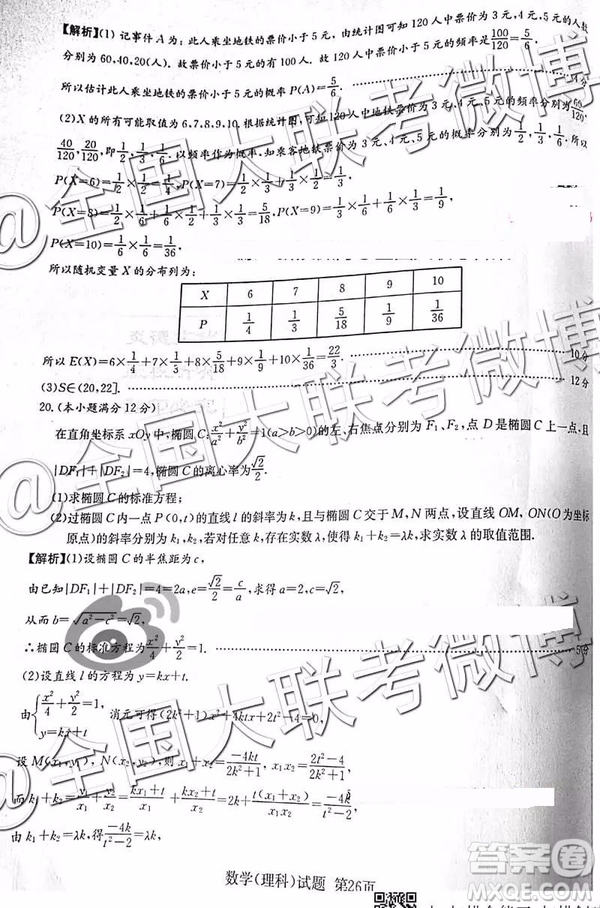 【解析】(1)记事件A为:此人乘坐地铁的票价小于5元,由统计图可知120人中票价为3元,4元,5元的人数
分别为60,40,20(人). 故票价小于5元的有100人. 故120人中票价小于5元的频率是100/120=5/6.
所以估计此人乘坐地铁的票价小于5元的概率P(A)=5/6.
(2)X的所有可能取值为6,7,8,9,10. 根据统计图,可知120人中地铁票价为3元,4元,5元的频率分别为60/120,
40/120,20/120,即1/2,1/3,1/6. 以频率作为概率,知乘客地铁票价为3元,4元,5元的概率分别为1/2,1/3,1/6.
P(X=6)=1/2×1/2=1/4,P(X=7)=1/2×1/3+1/3×1/2=1/3,
P(X=8)=1/2×1/6+1/6×1/2+1/3×1/3=5/18,P(X=9)=1/3×1/6+1/6×1/3=1/9,
P(X=10)=1/6×1/6=1/36,
所以随机变量X的分布列为:
X 6 7 8 9 10
P 1/4 1/3 5/18 1/9 1/36
所以E(X)=6×1/4+7×1/3+8×5/18+9×1/9+10×1/36=22/3. 10分
(3)S∈(20,22]. 12分
20.(本小题满分12分)
在直角坐标系xOy中,椭圆C:x²/a²+y²/b²=1(a>b>0)的左、右焦点分别为F₁、F₂,点D是椭圆C上一点,且
|DF₁|+|DF₂|=4,椭圆C的离心率为√2/2.
(1)求椭圆C的标准方程;
(2)过椭圆C内一点P(0,t)的直线l的斜率为k,且与椭圆C交于M、N两点,设直线OM,ON(O为坐标
原点)的斜率分别为k₁,k₂,若对任意k,存在实数λ,使得k₁+k₂=λk,求实数λ的取值范围.
【解析】(1)设椭圆C的半焦距为c,
由已知|DF₁|+|DF₂|=4=2a,e=√2/2=c/a,求得a=2,c=√2,
从而b=√(a²-c²)=√2,
∴椭圆C的标准方程为x²/4+y²/2=1. 5分
(2)设直线l的方程为y=kx+t.
由{x²/4+y²/2=1, y=kx+t 消元可得(2k²+1)x²+4ktx+2t²-4=0,
设M(x₁,y₁),N(x₂,y₂),则x₁+x₂=-4kt/(2k²+1),x₁x₂=(2t²-4)/(2k²+1),
而k₁+k₂=y₁/x₁+y₂/x₂=(kx₁+t)/x₁+(kx₂+t)/x₂=2k+t(x₁+x₂)/(x₁x₂)
由k₁+k₂=λk,得-4k/(t²-2)=λk,
数学(理科)试题 第26页
@全国大联考微博
@全国大联考微博
@全国大联考微博
答案圈
MXQE.COM